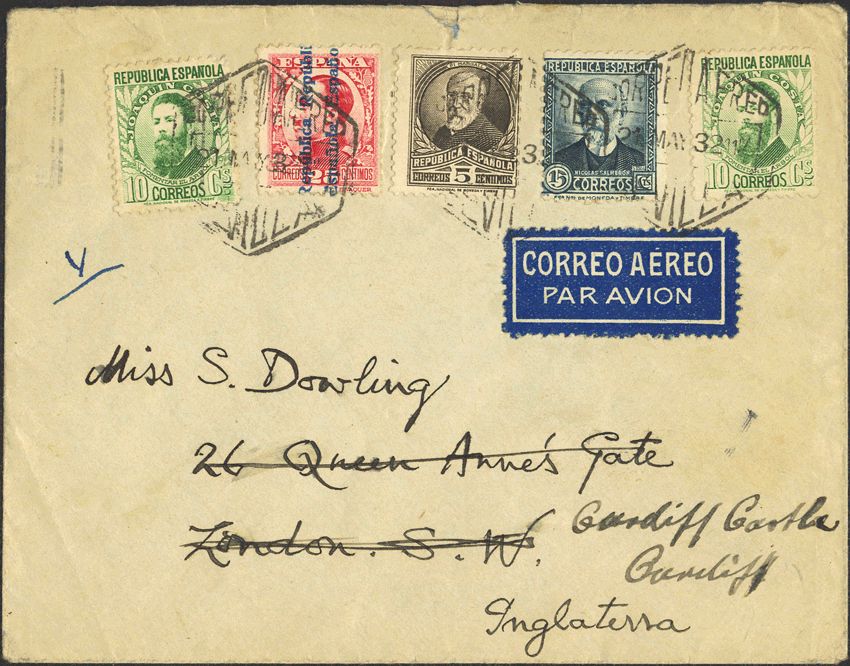 REPÚBLICA ESPAÑOLA
JOAQUIN COSTA
10 CORREOS Cs
ESPAÑA
República Española
CORREOS CENTIMOS
REPÚBLICA ESPAÑOLA
CORREOS 5 CENTIMOS
REPÚBLICA ESPAÑOLA
NICOLAS SALMERON
15 CORREOS Cs
REPÚBLICA ESPAÑOLA
JOAQUIN COSTA
10 CORREOS Cs
CORREO AEREO
21 MAY 32
SEVILLA
CORREO AÉREO
PAR AVION
Miss S. Dowling
26 Queen Anne's Gate
London. S. W.
Cardiff Castle
Cardiff
Inglaterra